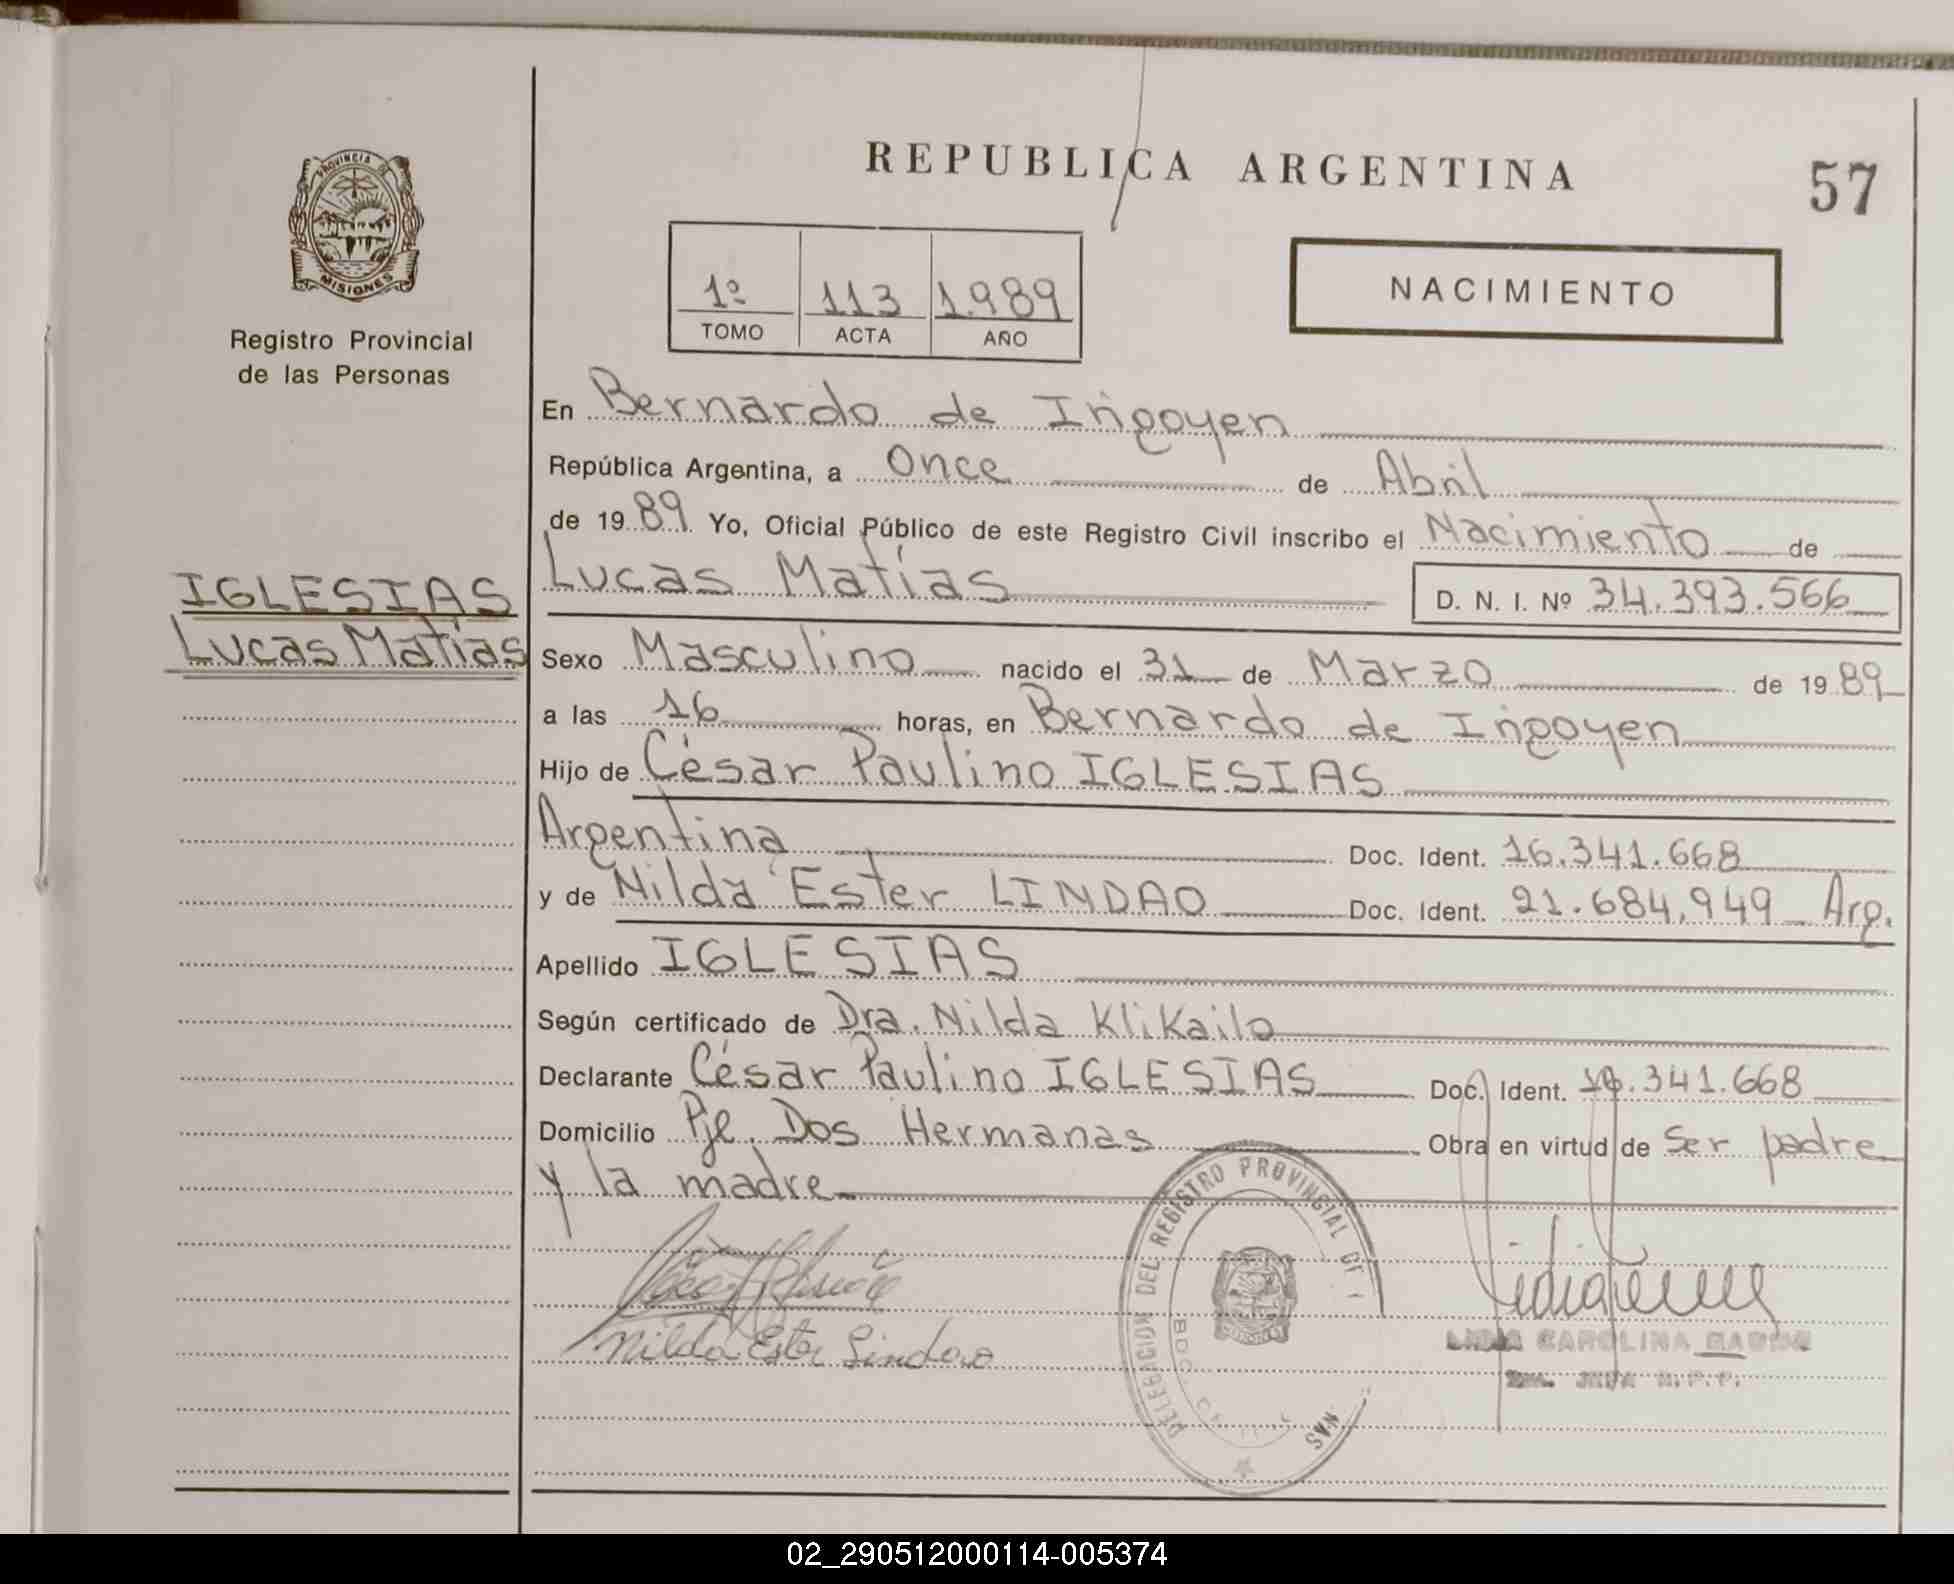 REPUBLICA ARGENTINA
57
PROVINCIA DE
MISIONES
Registro Provincial
de las Personas
1º 113 1.989
TOMO ACTA AÑO
NACIMIENTO
En Bernardo de Irigoyen
República Argentina, a Once de Abril
de 1989 Yo, Oficial Público de este Registro Civil inscribo el Nacimiento de
Lucas Matías D. N. I. Nº 34.393.566
IGLESIAS
Lucas Matías
Sexo Masculino nacido el 31 de Marzo de 1989
a las 16 horas, en Bernardo de Irigoyen
Hijo de César Paulino IGLESIAS
Argentina Doc. Ident. 16.341.668
y de Nilda Ester LINDAO Doc. Ident. 21.684.949 Arg.
Apellido IGLESIAS
Según certificado de Dra. Nilda Klikailo
Declarante César Paulino IGLESIAS Doc. Ident. 16.341.668
Domicilio Pje. Dos Hermanas Obra en virtud de Ser padre
y la madre
DELEGACION DEL REGISTRO PROVINCIAL DE
Nilda Ester Lindao
CAROLINA
02_290512000114-005374